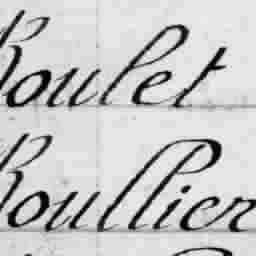 Roulet
Roullier